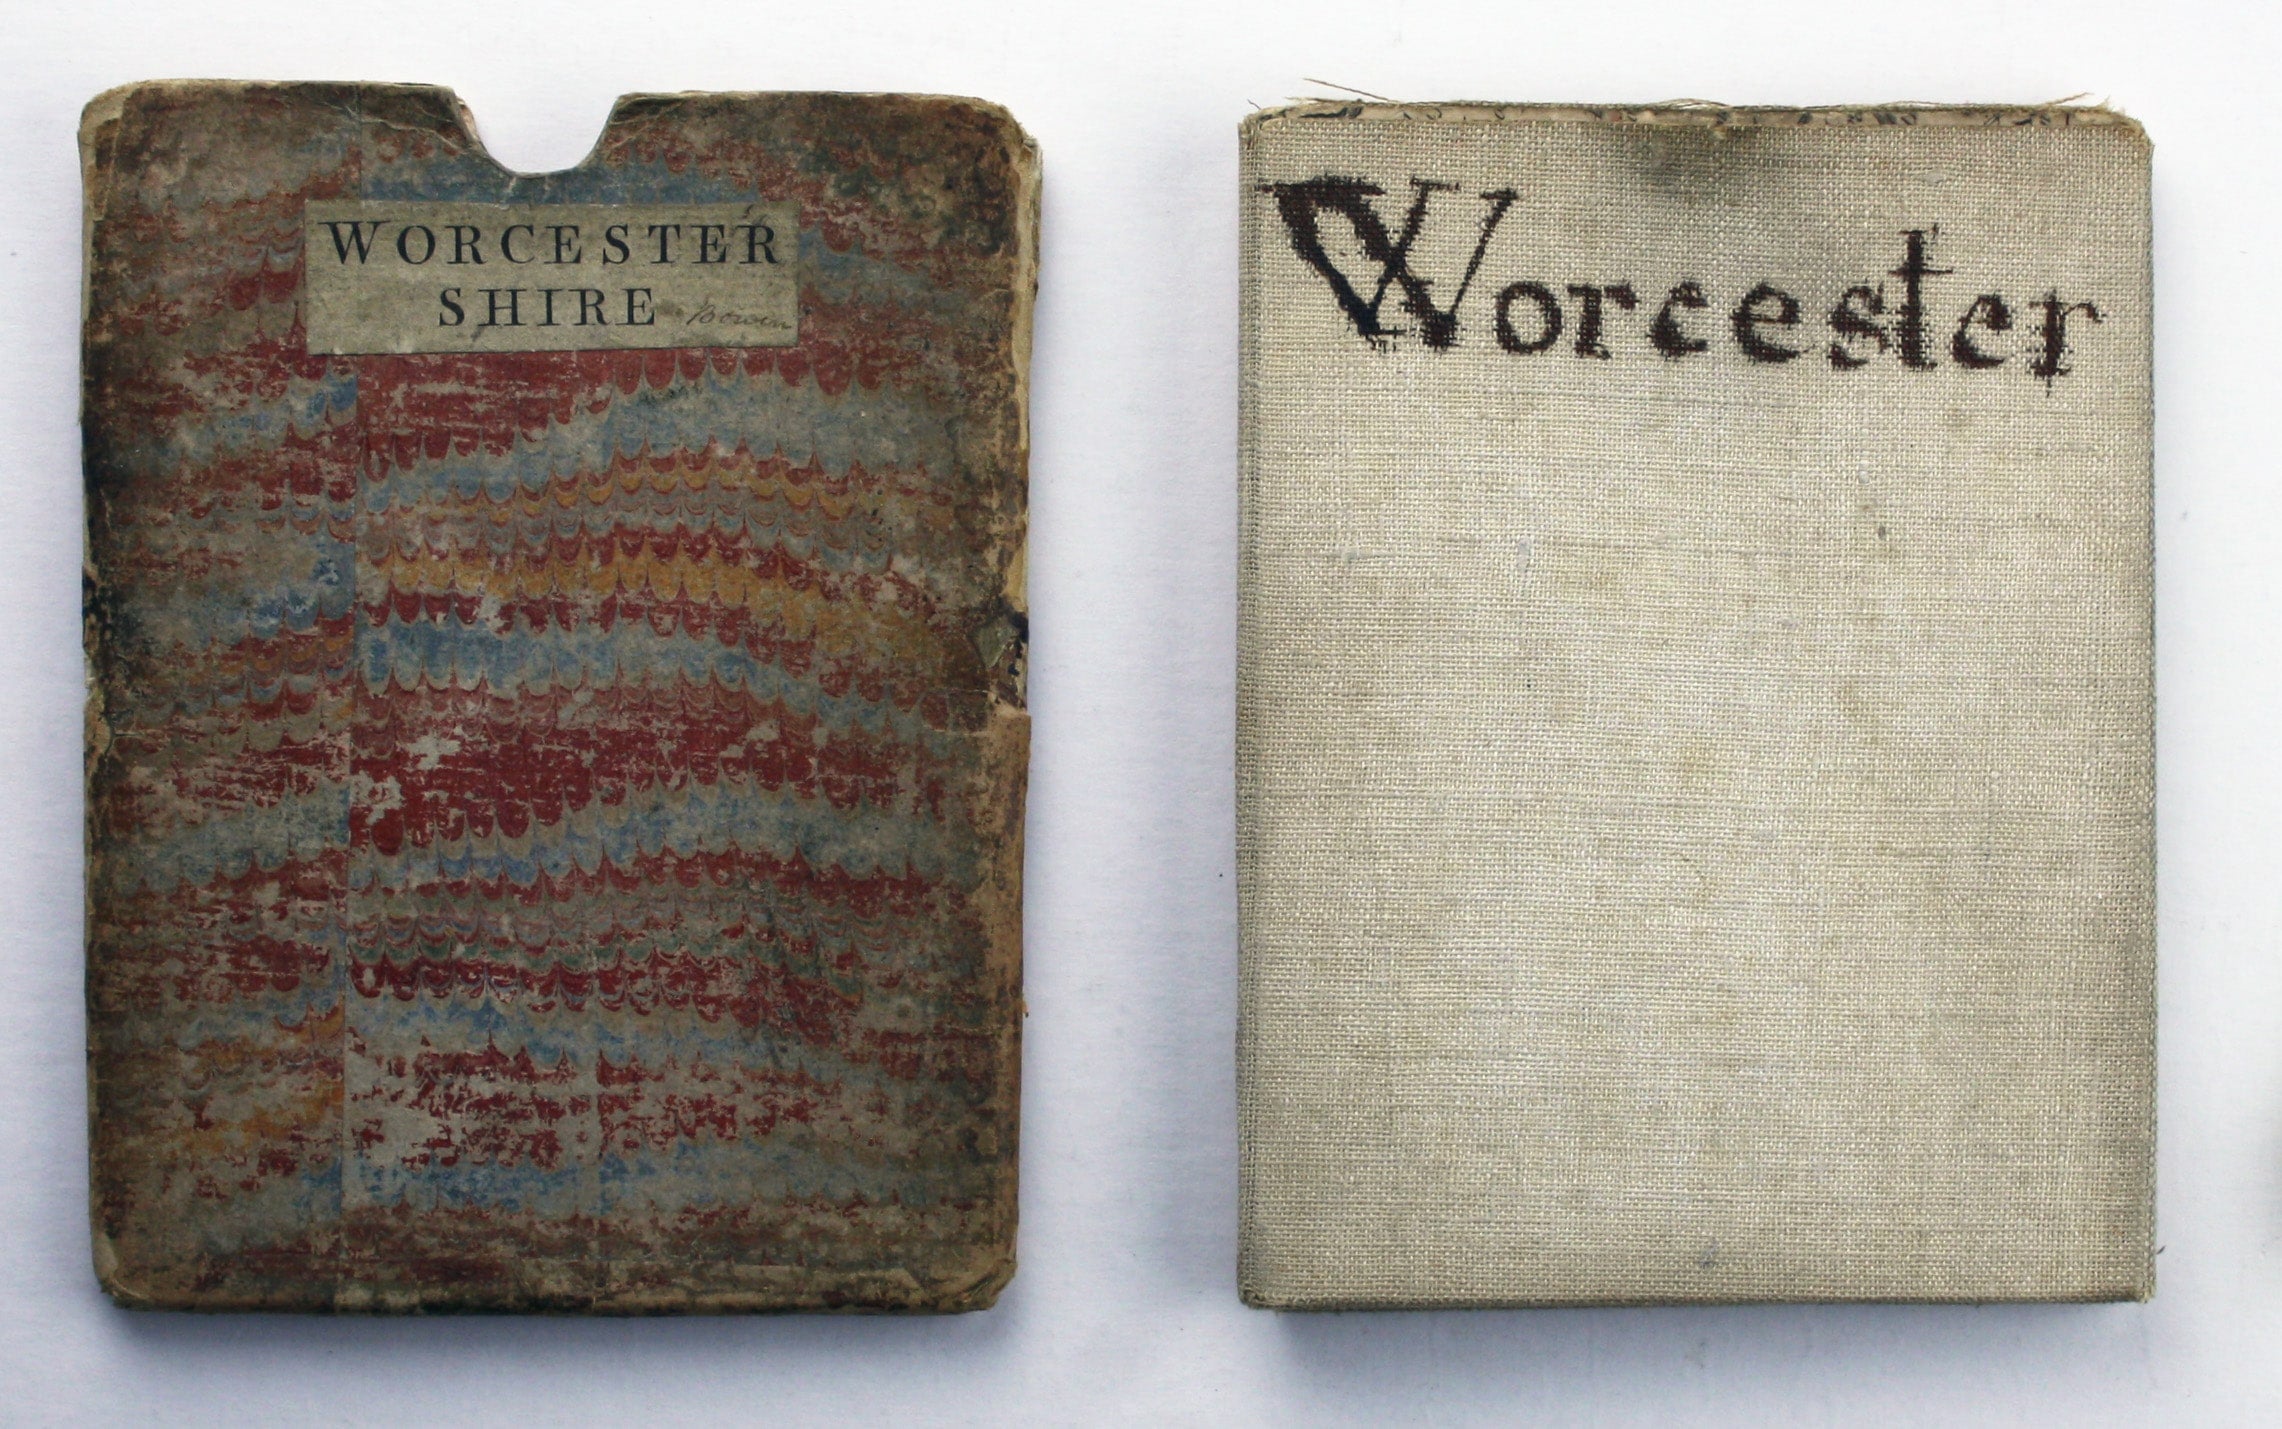 WORCESTER
SHIRE Bowen
Worcester